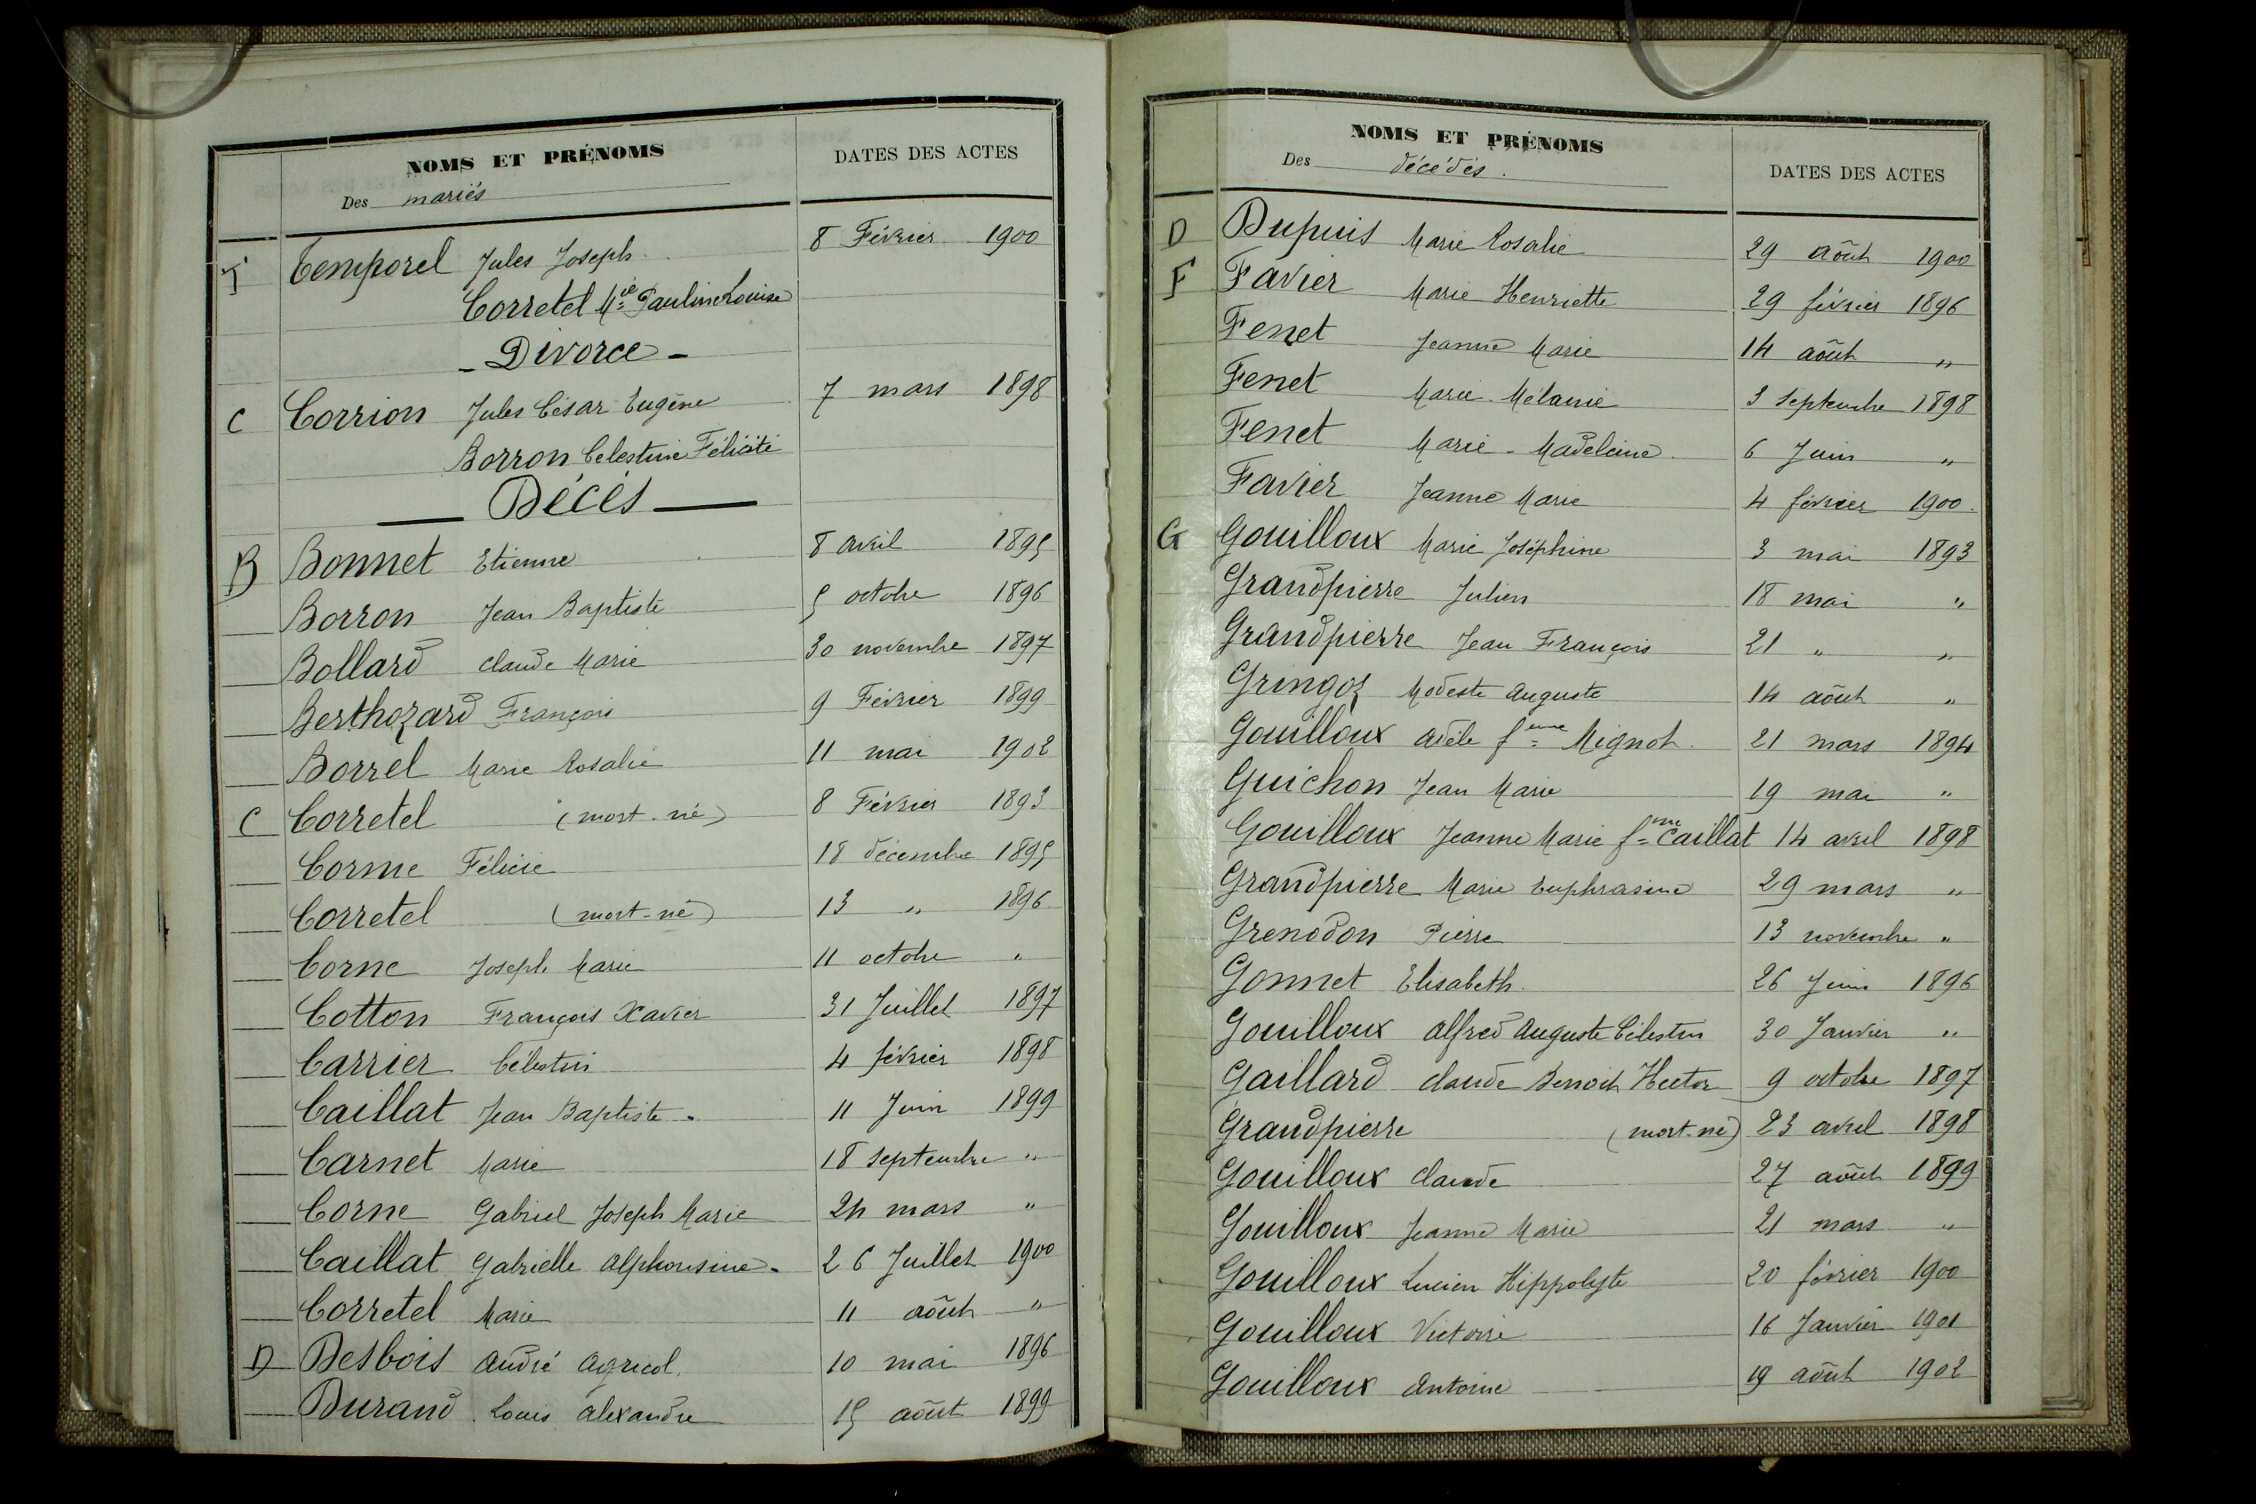 NOMS ET PRÉNOMS
Des mariés
DATES DES ACTES
T Temporel Jules Joseph 8 Février 1900
Corretel Mie Pauline Louise
- Divorce -
C Corrion Jules César Eugène 7 mars 1898
Borron Celestine Félicité
— Décès —
B Bonnet Etienne 8 avril 1895
Borron Jean Baptiste 5 octobre 1896
Bollard Claude Marie 30 novembre 1897
Berthozard François 9 Février 1899
Borrel Marie Rosalie 11 mai 1902
C Corretel (mort-né) 8 Février 1893
Corme Félicie 18 décembre 1895
Corretel (mort-né) 13 " 1896
Corne Joseph Marie 11 octobre "
Cotton François Xavier 31 Juillet 1897
Carrier Célestin 4 février 1898
Caillat Jean Baptiste 11 Juin 1899
Carnet Marie 18 septembre "
Corne Gabriel Joseph Marie 24 mars "
Caillat Gabrielle Alphonsine 26 Juillet 1900
Corretel Marie 11 août "
D Desbois André Agricol 10 mai 1896
Durand Louis Alexandre 15 août 1899
NOMS ET PRÉNOMS
Des décédés.
DATES DES ACTES
D Dupuis Marie Rosalie 29 août 1900
F Favier Marie Henriette 29 février 1896
Fenet Jeanne Marie 14 août "
Fenet Marie-Mélanie 3 septembre 1898
Fenet Marie-Madeleine 6 Juin "
Favier Jeanne Marie 4 février 1900
G Gouilloux Marie Joséphine 3 mai 1893
Grandpierre Julien 18 mai "
Grandpierre Jean François 21 " "
Gringoz Modeste Auguste 14 août "
Gouilloux Adèle feme Mignot 21 mars 1894
Guichon Jean Marie 19 mai "
Gouilloux Jeanne Marie fme Caillat 14 avril 1898
Grandpierre Marie Euphrasine 29 mars "
Grenodon Pierre 13 novembre "
Gonnet Elisabeth 26 Juin 1896
Gouilloux Alfred Auguste Célestin 30 Janvier "
Gaillard Claude Benoit Hector 9 octobre 1897
Grandpierre (mort-né) 23 avril 1898
Gouilloux Claude 27 août 1899
Gouilloux Jeanne Marie 21 mars "
Gouilloux Lucien Hippolyte 20 février 1900
Gouilloux Victoire 16 Janvier 1901
Gouilloux Antoine 19 août 1902